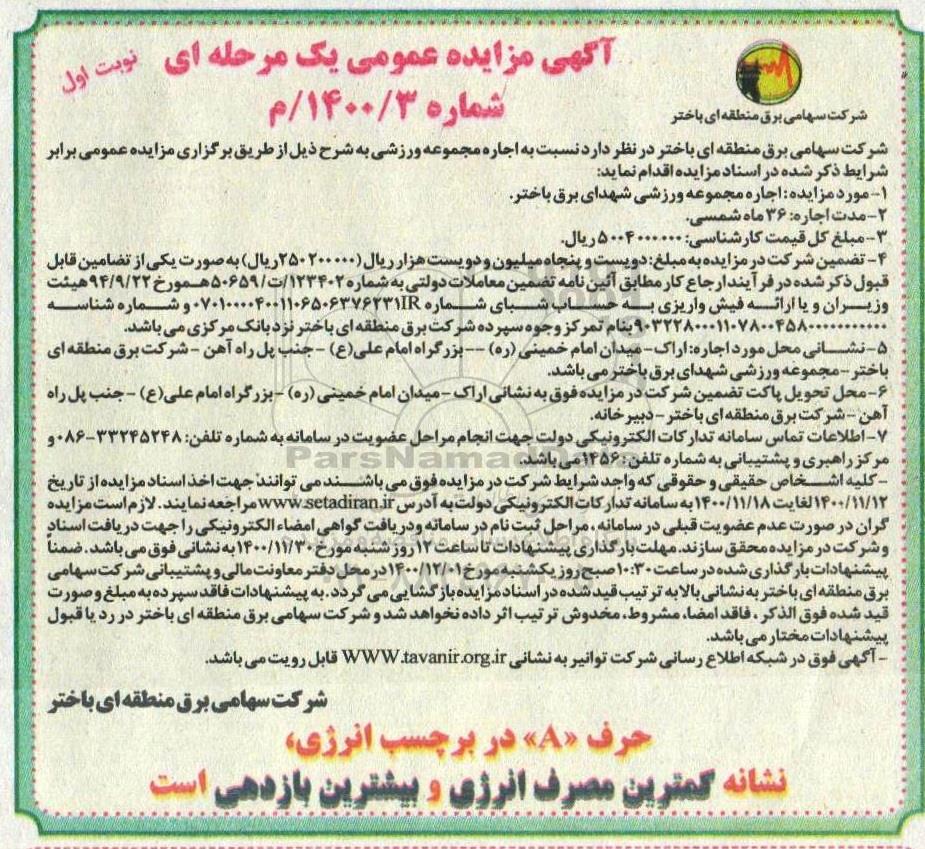 آگهی مزایده عمومی یک مرحله ای
نوبت اول
شماره ۱۴۰۰/۳/م
شرکت سهامی برق منطقه ای باختر
شرکت سهامی برق منطقه ای باختر در نظر دارد نسبت به اجاره مجموعه ورزشی به شرح ذیل از طریق برگزاری مزایده عمومی برابر
شرایط ذکر شده در اسناد مزایده اقدام نماید:
۱- مورد مزایده: اجاره مجموعه ورزشی شهدای برق باختر.
۲- مدت اجاره: ۳۶ ماه شمسی.
۳- مبلغ کل قیمت کارشناسی: ۵۰۰۴۰۰۰۰۰۰ ریال.
۴- تضمین شرکت در مزایده به مبلغ: دویست و پنجاه میلیون و دویست هزار ریال (۲۵۰۲۰۰۰۰۰ ریال) به صورت یکی از تضامین قابل
قبول ذکر شده در فرآیند ارجاع کار مطابق آئین نامه تضمین معاملات دولتی به شماره ۱۲۳۴۰۲/ت/۵۰۶۵۹ه مورخ ۹۴/۹/۲۲ هیئت
وزیران و یا ارائه فیش واریزی به حساب شبای شماره ۰۷۰۱۰۰۰۰۴۰۰۱۱۰۶۵۰۶۳۷۶۲۳۱IR و شماره شناسه
۹۰۳۲۲۸۰۰۰۱۱۰۷۸۰۰۴۵۸۰۰۰۰۰۰۰۰۰۰۰ بنام تمرکز وجوه سپرده شرکت برق منطقه ای باختر نزد بانک مرکزی می باشد.
۵- نشانی محل مورد اجاره: اراک- میدان امام خمینی (ره) -- بزرگراه امام علی(ع) - جنب پل راه آهن - شرکت برق منطقه ای
باختر- مجموعه ورزشی شهدای برق باختر می باشد.
۶- محل تحویل پاکت تضمین شرکت در مزایده فوق به نشانی اراک - میدان امام خمینی (ره) - بزرگراه امام علی(ع) - جنب پل راه
آهن- شرکت برق منطقه ای باختر- دبیرخانه.
۷- اطلاعات تماس سامانه تدارکات الکترونیکی دولت جهت انجام مراحل عضویت در سامانه به شماره تلفن: ۳۳۲۴۵۲۴۸-۰۸۶ و
مرکز راهبری و پشتیبانی به شماره تلفن: ۱۴۵۶ می باشد.
ParsNamadData
- کلیه اشخاص حقیقی و حقوقی که واجد شرایط شرکت در مزایده فوق می باشند می توانند جهت اخذ اسناد مزایده از تاریخ
۱۴۰۰/۱۱/۱۲ لغایت ۱۴۰۰/۱۱/۱۸ به سامانه تدارکات الکترونیکی دولت به آدرس www.setadiran.ir مراجعه نمایند. لازم است مزایده
گران در صورت عدم عضویت قبلی در سامانه، مراحل ثبت نام در سامانه و دریافت گواهی امضاء الکترونیکی را جهت دریافت اسناد
و شرکت در مزایده محقق سازند. مهلت بارگذاری پیشنهادات تا ساعت ۱۲ روز شنبه مورخ ۱۴۰۰/۱۱/۳۰ به نشانی فوق می باشد. ضمناً
پیشنهادات بارگذاری شده در ساعت ۱۰:۳۰ صبح روز یکشنبه مورخ ۱۴۰۰/۱۲/۰۱ در محل دفتر معاونت مالی و پشتیبانی شرکت سهامی
برق منطقه ای باختر به نشانی بالا به ترتیب قید شده در اسناد مزایده بازگشایی می گردد. به پیشنهادات فاقد سپرده به مبلغ و صورت
قید شده فوق الذکر، فاقد امضا، مشروط، مخدوش ترتیب اثر داده نخواهد شد و شرکت سهامی برق منطقه ای باختر در رد یا قبول
پیشنهادات مختار می باشد.
- آگهی فوق در شبکه اطلاع رسانی شرکت توانیر به نشانی WWW.tavanir.org.ir قابل رویت می باشد.
شرکت سهامی برق منطقه ای باختر
حرف «A» در برچسب انرژی،
نشانه کمترین مصرف انرژی و بیشترین بازدهی است